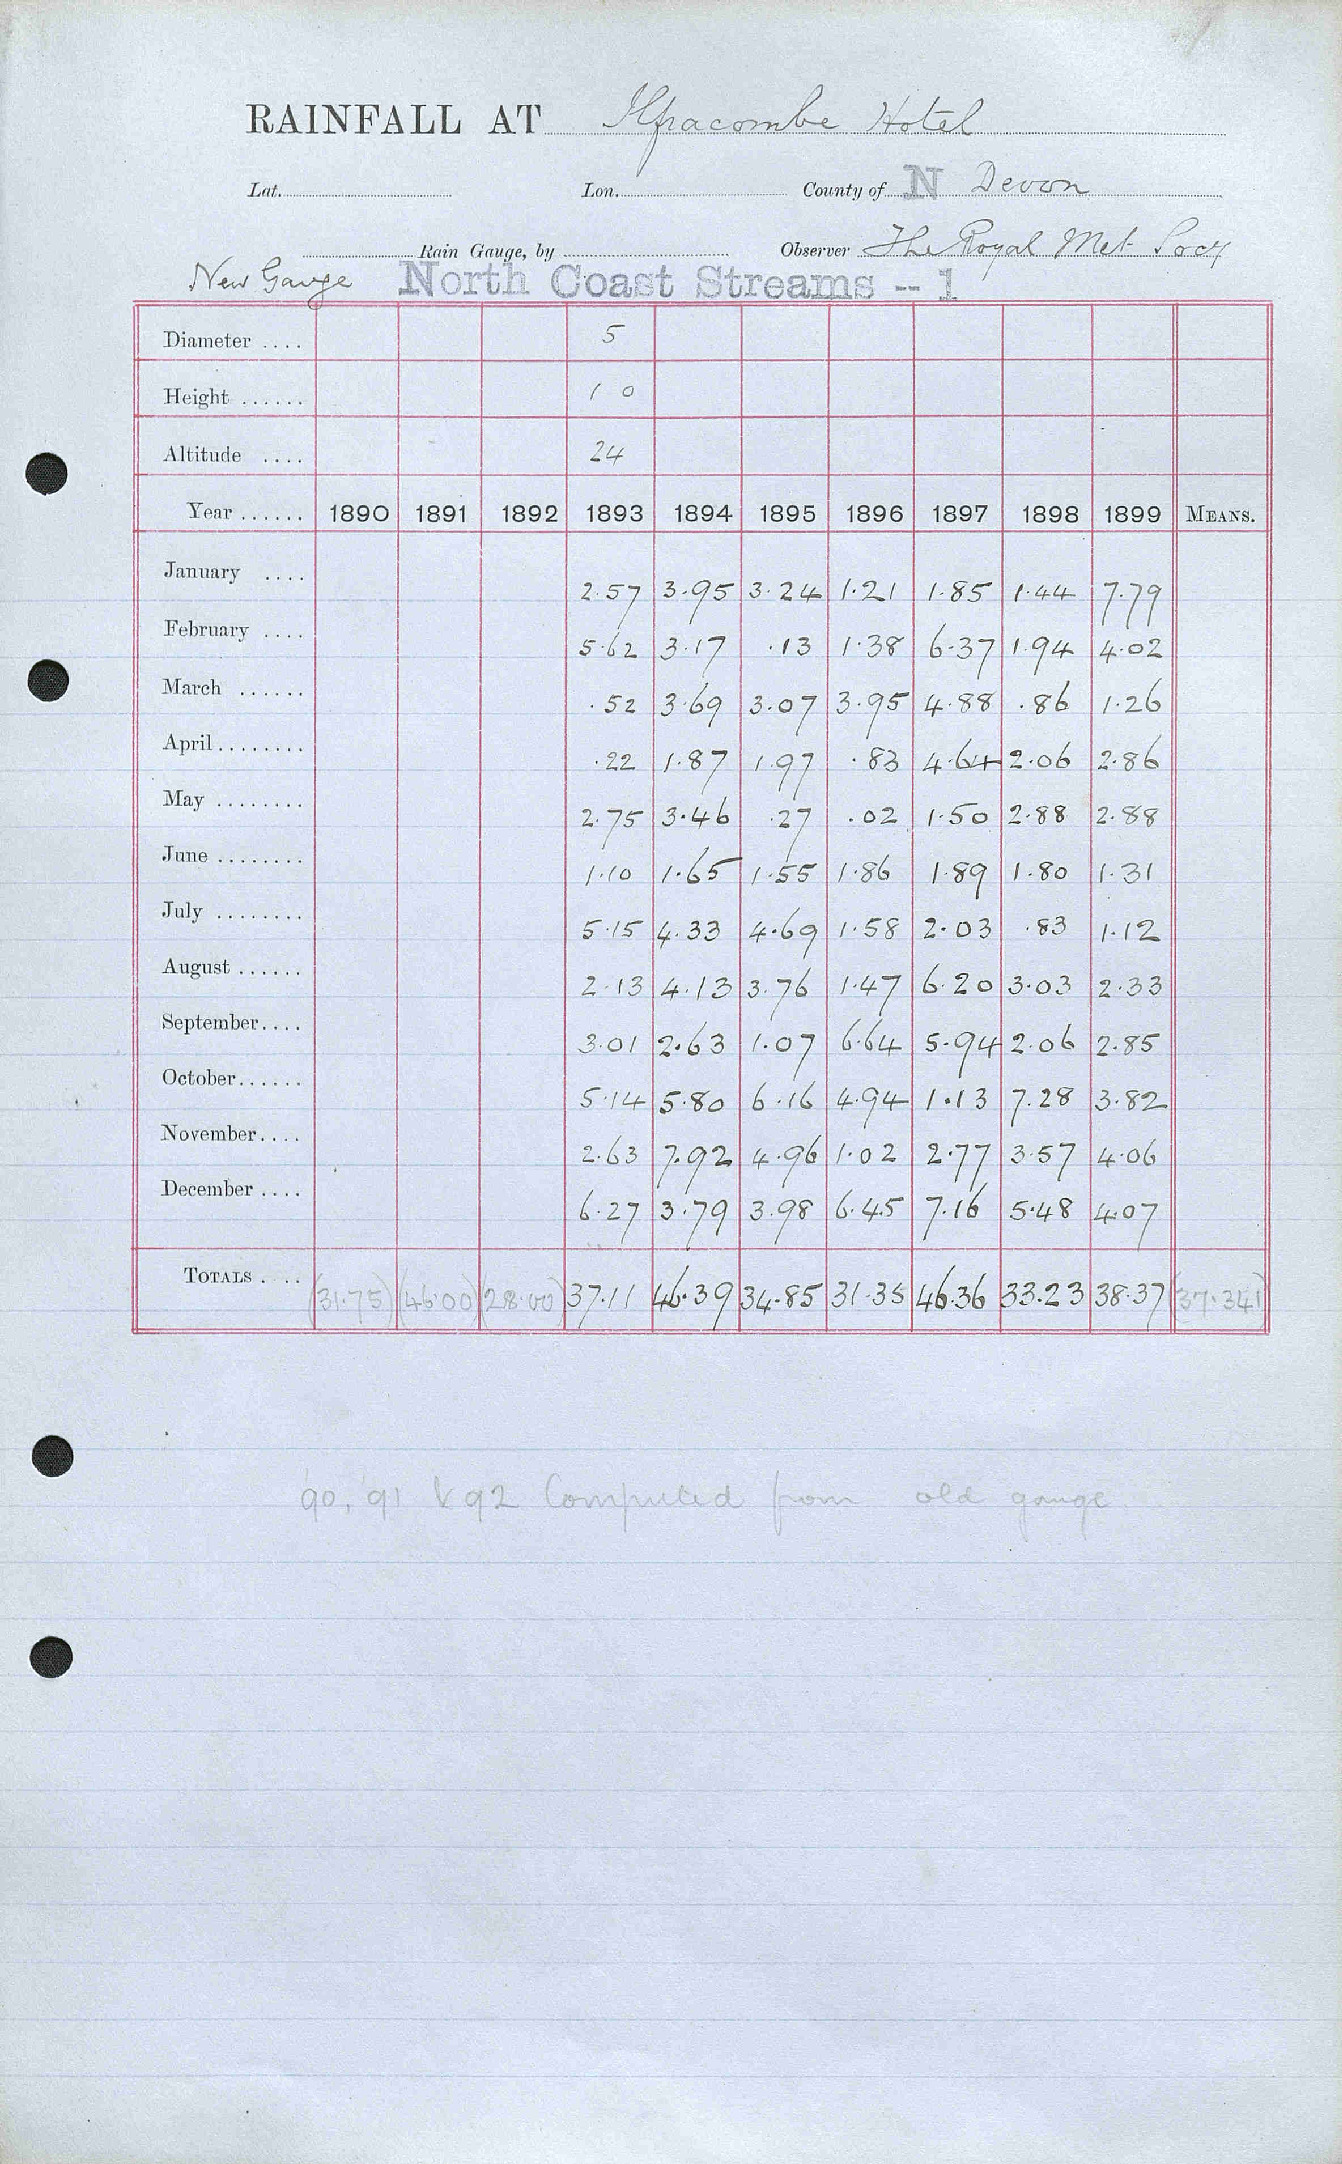 RAINFALL AT Ilfracombe Hotel
Lat. Lon. County of N Devon
Rain Gauge, by Observer The Royal Met. Socy
New Gauge North Coast Streams -- 1
Diameter .... 5
Height ...... 1 0
Altitude .... 24
Year ...... 1890 1891 1892 1893 1894 1895 1896 1897 1898 1899 MEANS.
January .... 2.57 3.95 3.24 1.21 1.85 1.44 7.79
February .... 5.62 3.17 .13 1.38 6.37 1.94 4.02
March ...... .52 3.69 3.07 3.95 4.88 .86 1.26
April ........ .22 1.87 1.97 .83 4.64 2.06 2.86
May ........ 2.75 3.46 .27 .02 1.50 2.88 2.88
June ........ 1.10 1.65 1.55 1.86 1.89 1.80 1.31
July ........ 5.15 4.33 4.69 1.58 2.03 .83 1.12
August ...... 2.13 4.13 3.76 1.47 6.20 3.03 2.33
September .... 3.01 2.63 1.07 6.64 5.94 2.06 2.85
October ...... 5.14 5.80 6.16 4.94 1.13 7.28 3.82
November .... 2.63 7.92 4.96 1.02 2.77 3.57 4.06
December .... 6.27 3.79 3.98 6.45 7.16 5.48 4.07
TOTALS .... (31.75) (46.00) (28.00) 37.11 46.39 34.85 31.35 46.36 33.23 38.37 (37.341)
'90, '91 & 92 Computed from old gauge.